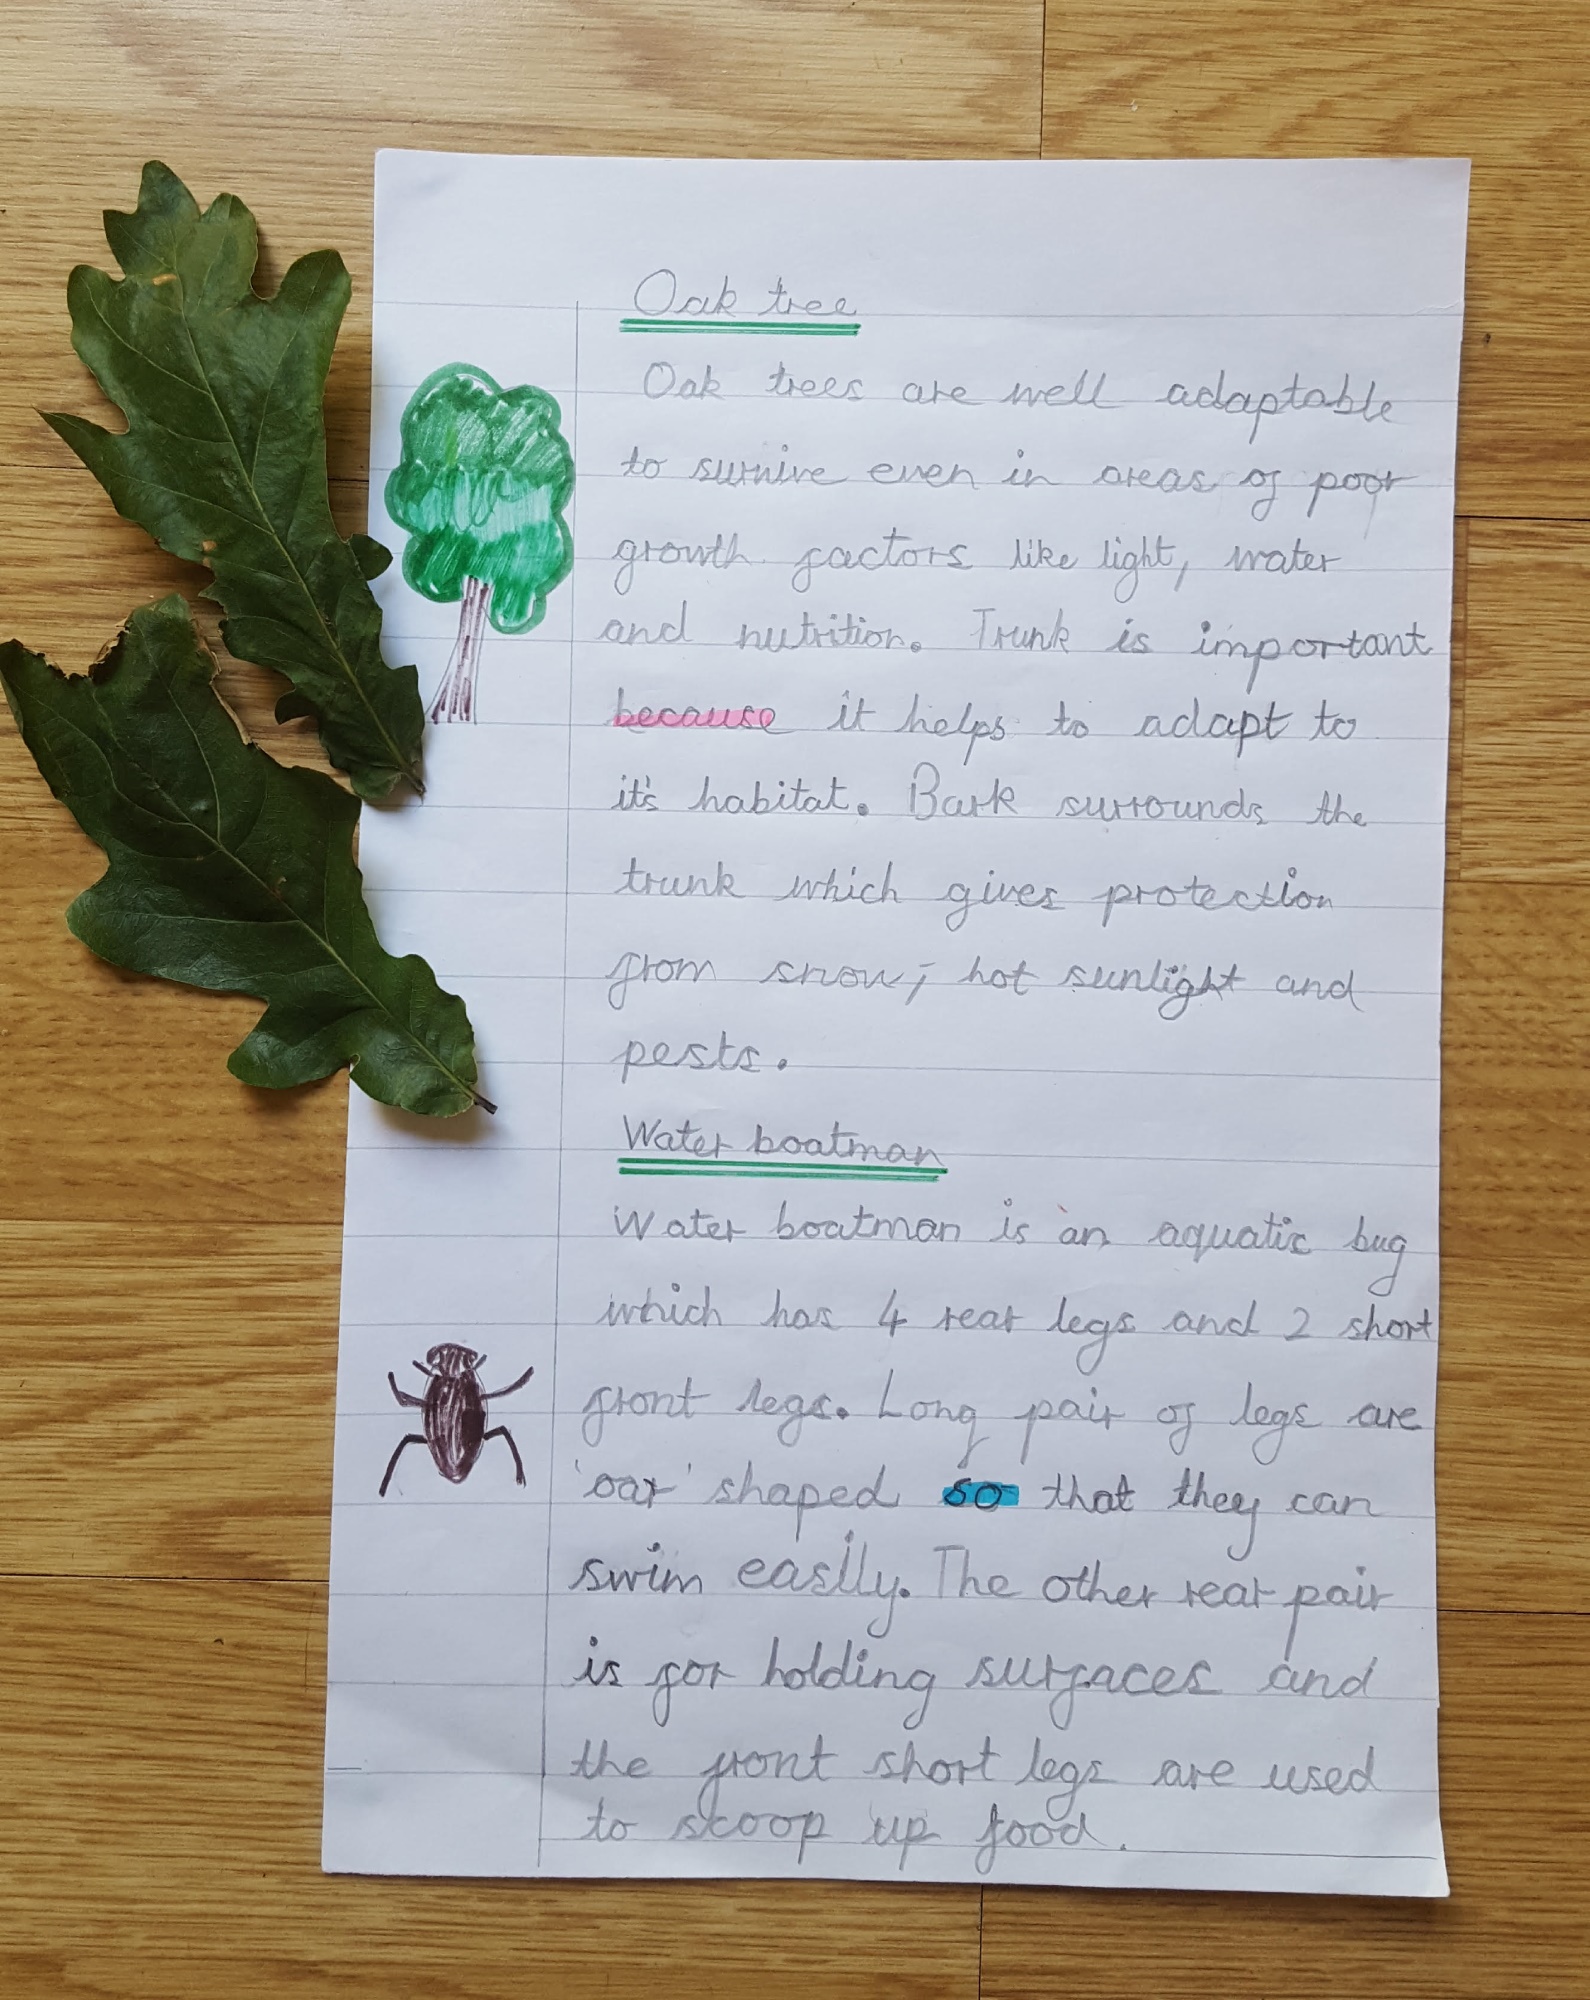 Oak tree
Oak trees are well adaptable
to survive even in areas of poor
growth factors like light, water
and nutrition. Trunk is important
because it helps to adapt to
it's habitat. Bark surrounds the
trunk which gives protection
from snow, hot sunlight and
pests.
Water boatman
Water boatman is an aquatic bug
which has 4 rear legs and 2 short
front legs. Long pair of legs are
'oar' shaped so that they can
swim easily. The other rear pair
is for holding surfaces and
the front short legs are used
to scoop up food.